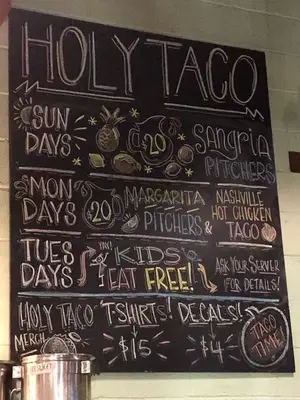 HOLY TACO
SUN DAYS
$20
SANGRIA PITCHERS
MON DAYS
$20
MARGARITA PITCHERS &
NASHVILLE HOT CHICKEN TACO
TUES DAYS
YAY!
KIDS EAT FREE!
ASK YOUR SERVER FOR DETAILS!
HOLY TACO MERCH
T-SHIRTS! $15
DECALS! $4
TACO TIME